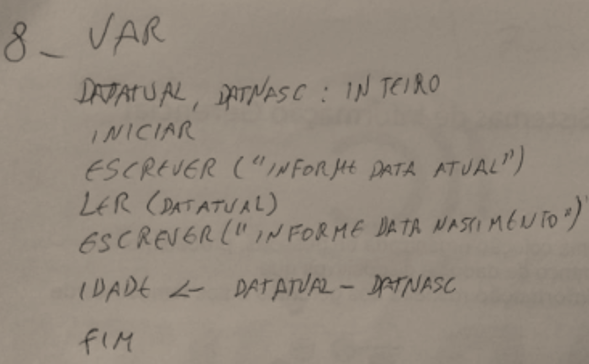 8_ VAR
DATATUAL, DATNASC : INTEIRO
INICIAR
ESCREVER ("INFORME DATA ATUAL")
LER (DATATUAL)
ESCREVER (" INFORME DATA NASCIMENTO")
IDADE <- DATATUAL - DATNASC
FIM